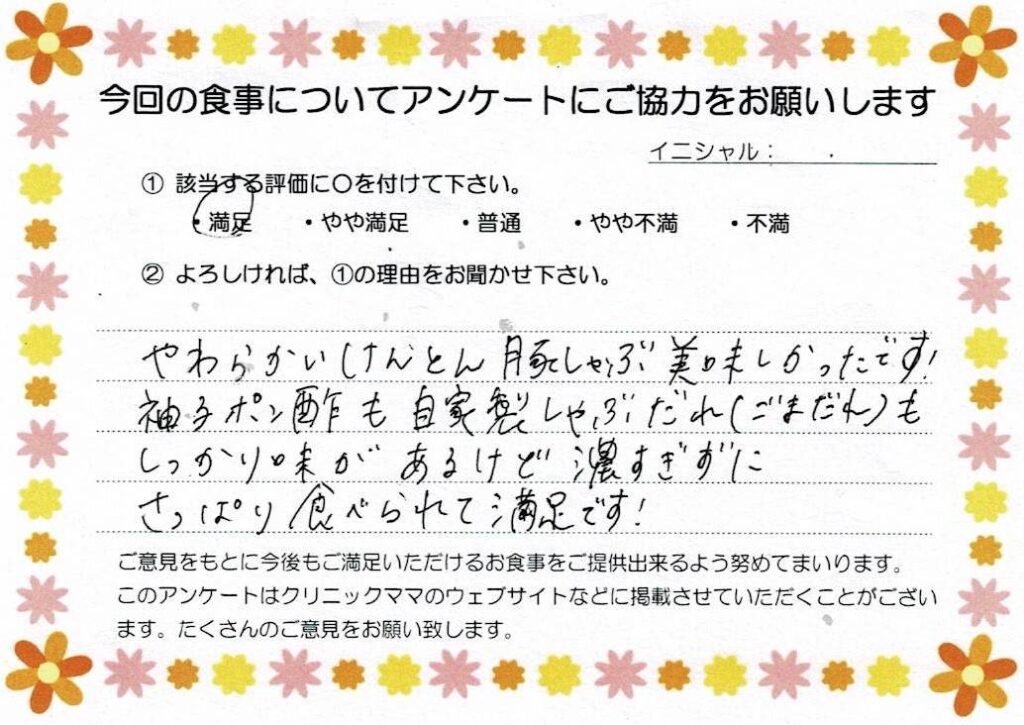 今回の食事についてアンケートにご協力をお願いします
イニシャル：
① 該当する評価に〇を付けて下さい。
・満足　・やや満足　・普通　・やや不満　・不満
② よろしければ、①の理由をお聞かせ下さい。
やわらかいけんとん豚しゃぶ美味しかったです!
袖子ポン酢も自家製しゃぶだれ(ごまだれ)も
しっかり味があるけど濃すぎずに
さっぱり食べられて満足です!
ご意見をもとに今後もご満足いただけるお食事をご提供出来るよう努めてまいります。
このアンケートはクリニックママのウェブサイトなどに掲載させていただくことがござい
ます。たくさんのご意見をお願い致します。